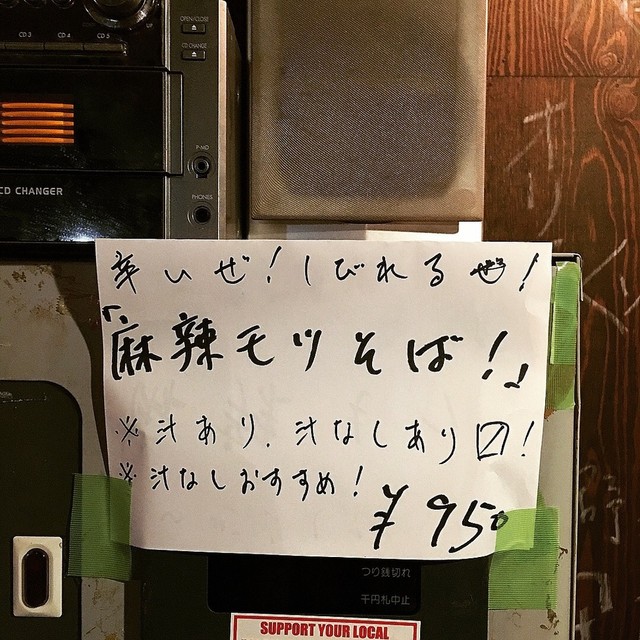 OPEN/CLOSE
CD 3 CD 4 CD 5
CD CHANGE
P-MD
CD CHANGER
PHONES
辛いぜ!しびれるぜ!
「麻辣モツそば!」
※汁あり、汁なしあり〼!
※汁なしおすすめ!
¥950
つり銭切れ
千円札中止
SUPPORT YOUR LOCAL